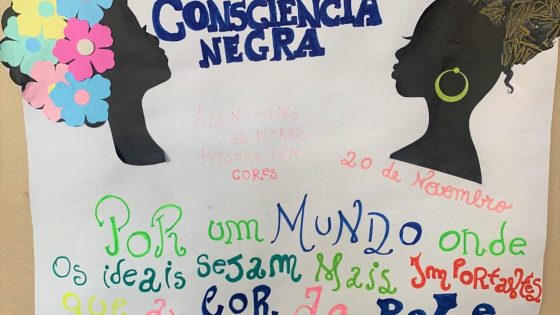 CONSCIÊNCIA
NEGRA
ASSIM COMO
as FLORES,
Pessoas tem
CORES
20 de Novembro
POR um MUNDO onde
Os ideais SEJAM MAIS IMPORTANTES
que a COR da PELE